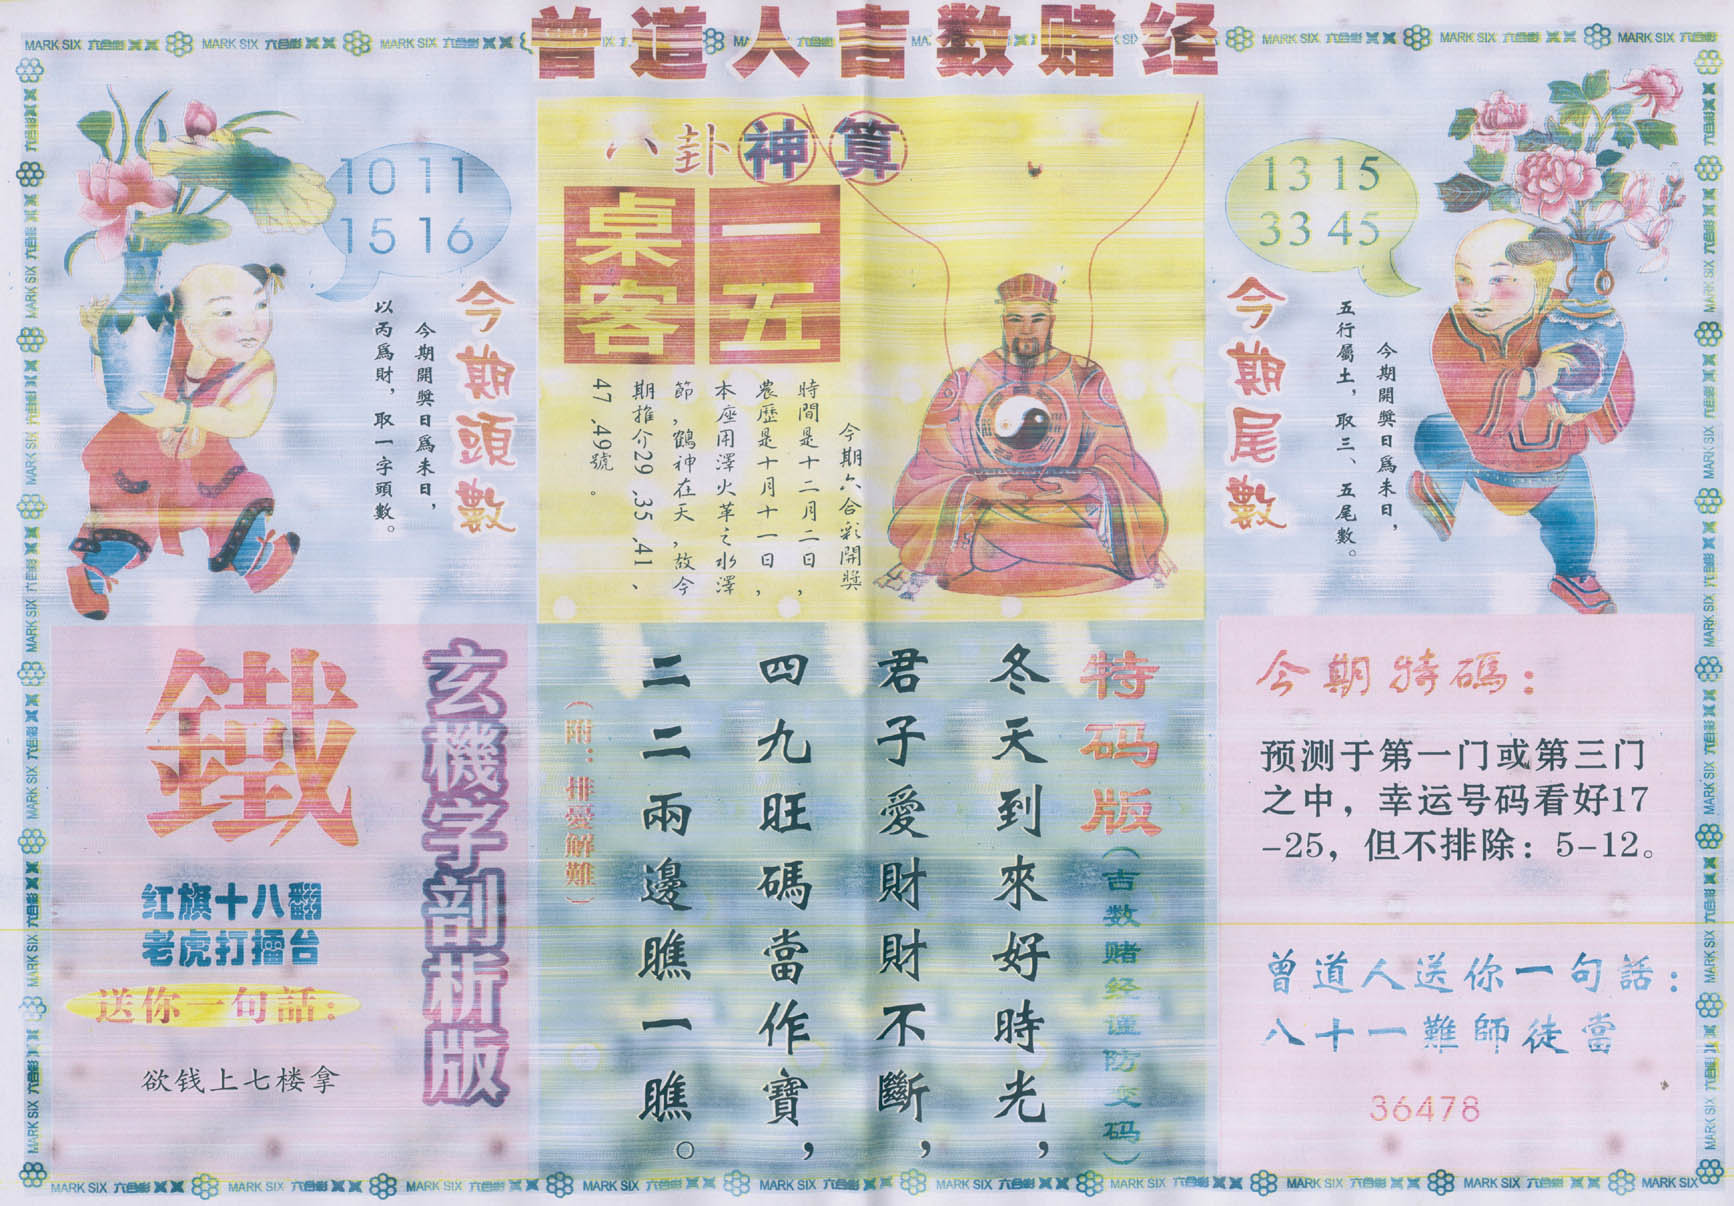 曾道人吉数赌经
MARK SIX 六合彩
10 11
15 16
今期頭數
今期開獎日爲未日，
以丙爲財，取一字頭數。
八卦神算
一五
桌客
今期六合彩開獎
時間是十二月二日，
農歷是十月十一日，
本座用澤火革之水澤
節，鶴神在天，故今
期推介29.35.41、
47.49號。
13 15
33 45
今期尾數
今期開獎日爲未日，
五行屬土，取三、五尾數。
玄機字剖析版
鐵
红旗十八翻
老虎打擂台
送你一句話：
欲钱上七楼拿
特码版
(吉数赌经谨防变码)
冬天到來好時光，
君子愛財財不斷，
四九旺碼當作寶，
二二兩邊瞧一瞧。
(附：排憂解難)
今期特碼：
预测于第一门或第三门
之中，幸运号码看好17
-25，但不排除：5-12。
曾道人送你一句話：
八十一難師徒當
36478